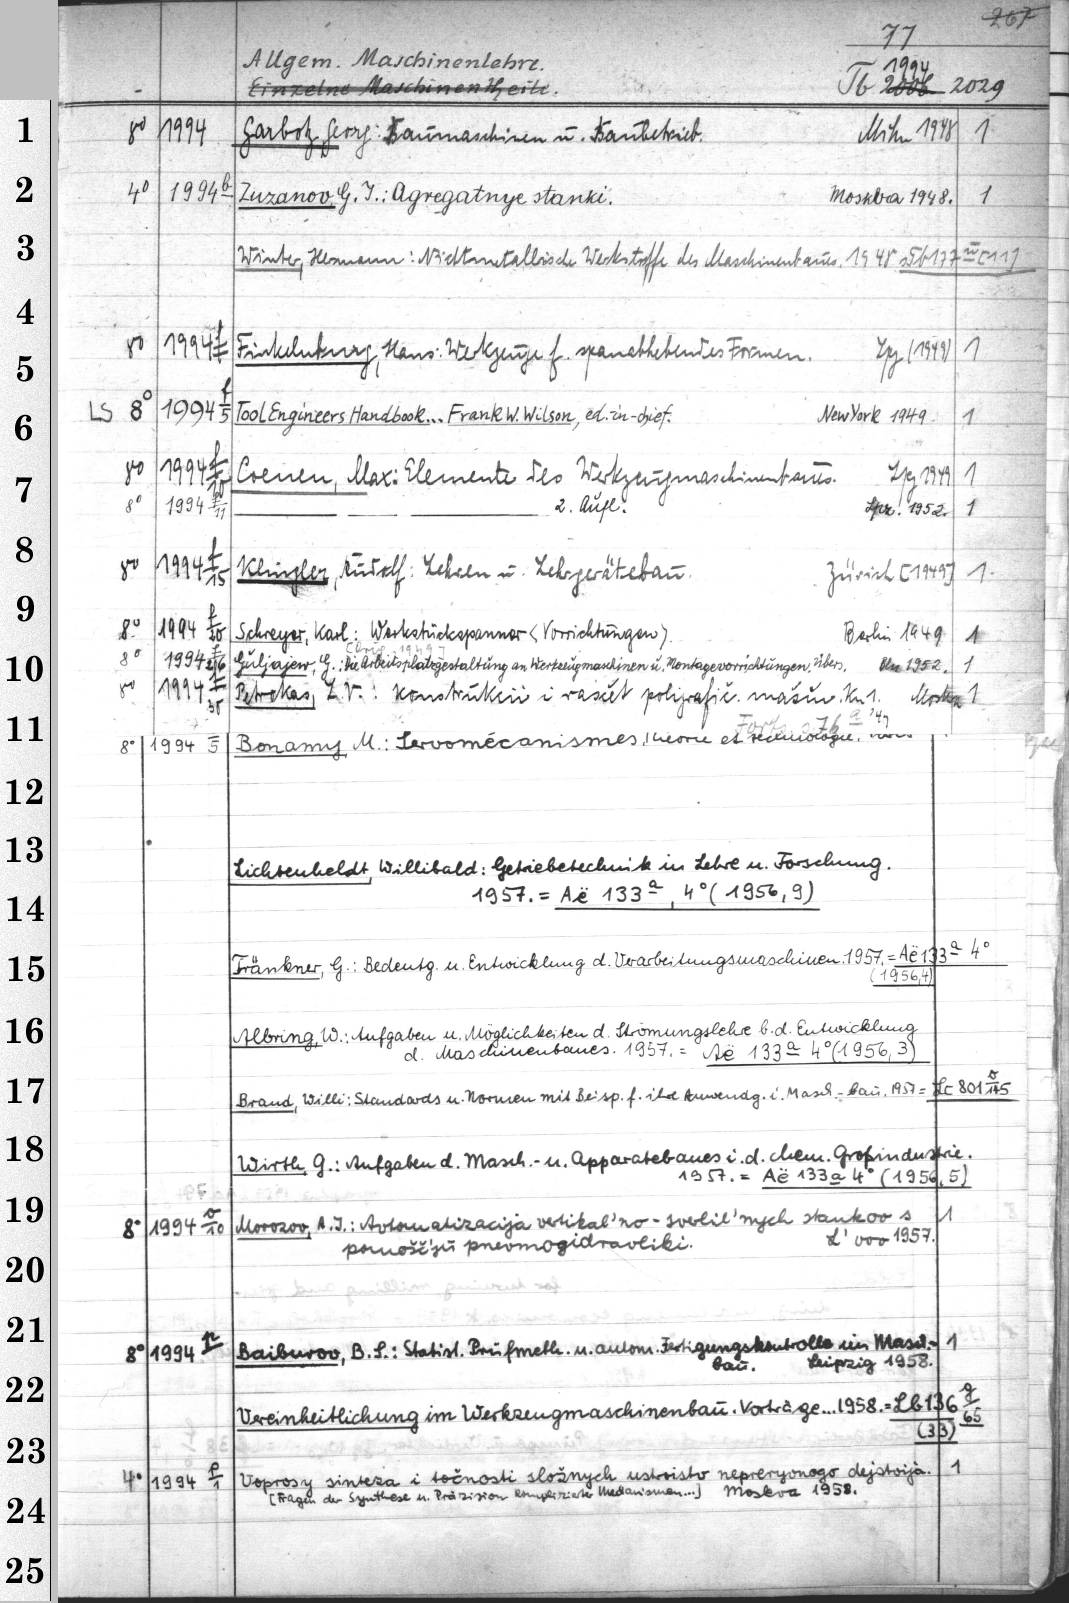 267
77
Allgem. Maschinenlehre. 1994
Einzelne Maschinentheile. Tb 2006 2029
1 8° 1994 Garbotz, Georg: Baumaschinen u. Baubetrieb. Mchn 1948 1
2 4° 1994 b Zuzanov, G. I.: Agregatnye stanki. Moskva 1948. 1
3 Winter, Hermann: Nichtmetallische Werkstoffe des Maschinenbaus. 1948 =Tb 177 m [11]
4
8° 1994 f Finkelnburg, Hans: Werkzeuge f. spanabhebendes Formen. Lpz (1949) 1
5
LS 8° 1994 f/5 Tool Engineers Handbook... Frank W. Wilson, ed.-in-chief. New York 1949. 1
6
8° 1994 f/10 Coenen, Max: Elemente des Werkzeugmaschinenbaus. Lpz 1949 1
7
8° 1994 f/11 2. Aufl. Lpz. 1952. 1
8
8° 1994 f/15 Klingler, Rudolf: Lehren u. Lehrgerätebau. Zürich [1949] 1
9
8° 1994 f/20 Schreyer, Karl: Werkstückspanner <Vorrichtungen>. Berlin 1949 1
10 8° 1994 f/26 Guljajew, G.: Die Arbeitsplatzgestaltung an Werkzeugmaschinen u. Montagevorrichtungen. Übers. Bln 1952. 1
8° 1994 f/30 Petrokas, L. V.: Konstrukcii i rasčët poligrafič. mašin. Kn 1. Moskva 1
Forts. s. 76 a '49
11 8° 1994 5 Bonamy, M.: Servomécanismes, théorie et technologie.
12
13 Lichtenheldt, Willibald: Getriebetechnik in Lehre u. Forschung.
14 1957. = Aë 133 a, 4° (1956, 9)
15 Fränkner, G.: Bedeutg. u. Entwicklung d. Verarbeitungsmaschinen. 1957. = Aë 133 a 4°
(1956,4)
16 Albring, W.: Aufgaben u. Möglichkeiten d. Strömungslehre b. d. Entwicklung
d. Maschinenbaues. 1957. = Aë 133 a 4° (1956, 3)
17 Brand, Willi: Standards u. Normen mit Beisp. f. ihre Anwendg. i. Masch.-bau. 1957 = Lc 801
18 Wirth, G.: Aufgaben d. Masch.- u. Apparatebaues i. d. chem. Großindustrie.
1957. = Aë 133 a 4° (1956, 5)
19 8° 1994 o/10 Morozov, A. I.: Avtomatizacija vertikal'no-sverlil'nych stankov s 1
pomošč'ju pnevmogidravliki. L'vov 1957.
20
21 8° 1994 Baiburov, B. S.: Statist. Prüfmeth. u. autom. Fertigungskontrolle im Masch.- 1
bau. Leipzig 1958.
22 Vereinheitlichung im Werkzeugmaschinenbau. Vorträge... 1958. = Lb 136 g/65
23 (33)
4° 1994 Voprosy sinteza i točnosti složnych ustroistv nepreryvnogo dejstvija. 1
[Fragen der Synthese u. Präzision komplizierter Mechanismen...] Moskva 1958.
24
25